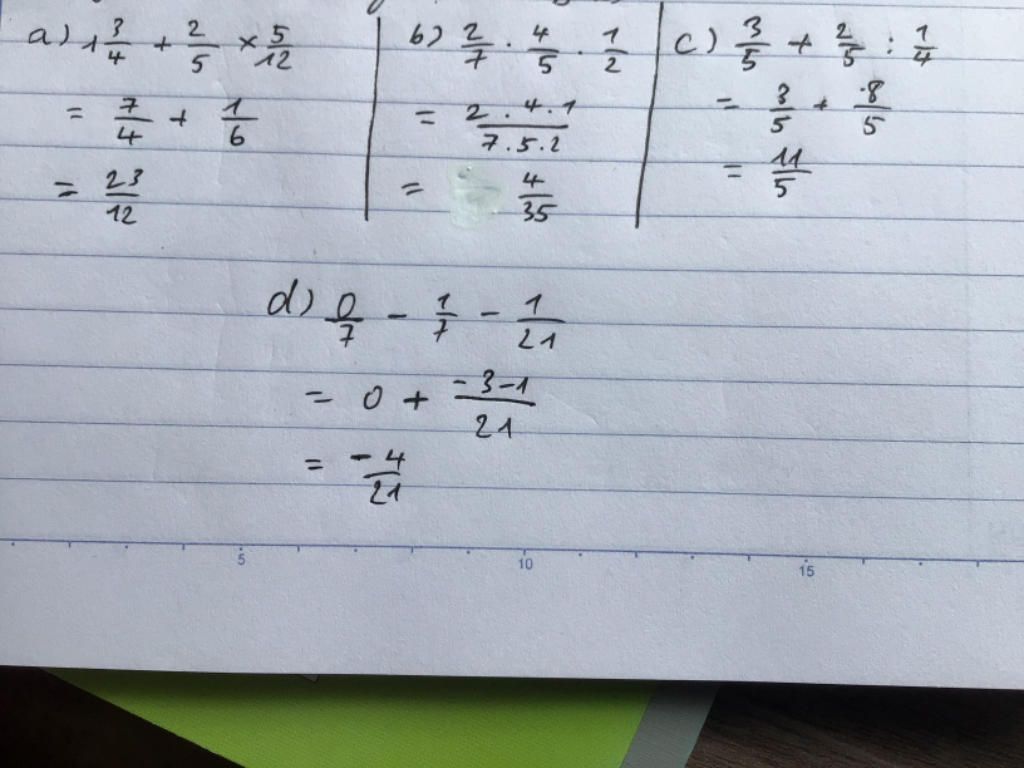 a) 1 3/4 + 2/5 × 5/12
= 7/4 + 1/6
= 23/12
b) 2/7 · 4/5 · 1/2
= 2 · 4 · 1 / 7 · 5 · 2
= 4/35
c) 3/5 + 2/5 : 1/4
= 3/5 + 8/5
= 11/5
d) 0/7 - 1/7 - 1/21
= 0 + -3-1/21
= -4/21
5 10 15